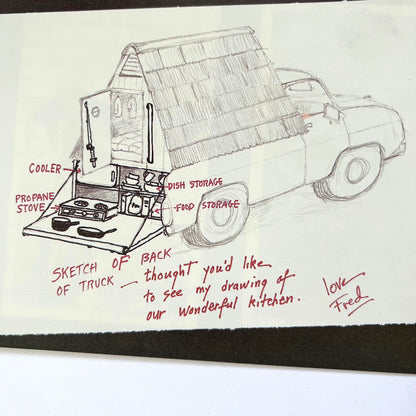 COOLER
DISH STORAGE
PROPANE
STOVE
FOOD STORAGE
SKETCH OF BACK
OF TRUCK — thought you'd like
to see my drawing of
our wonderful kitchen.
love
Fred